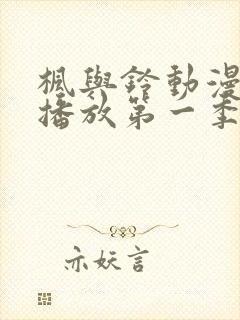 楓與鈴動漫
播放第一季
亦妖言